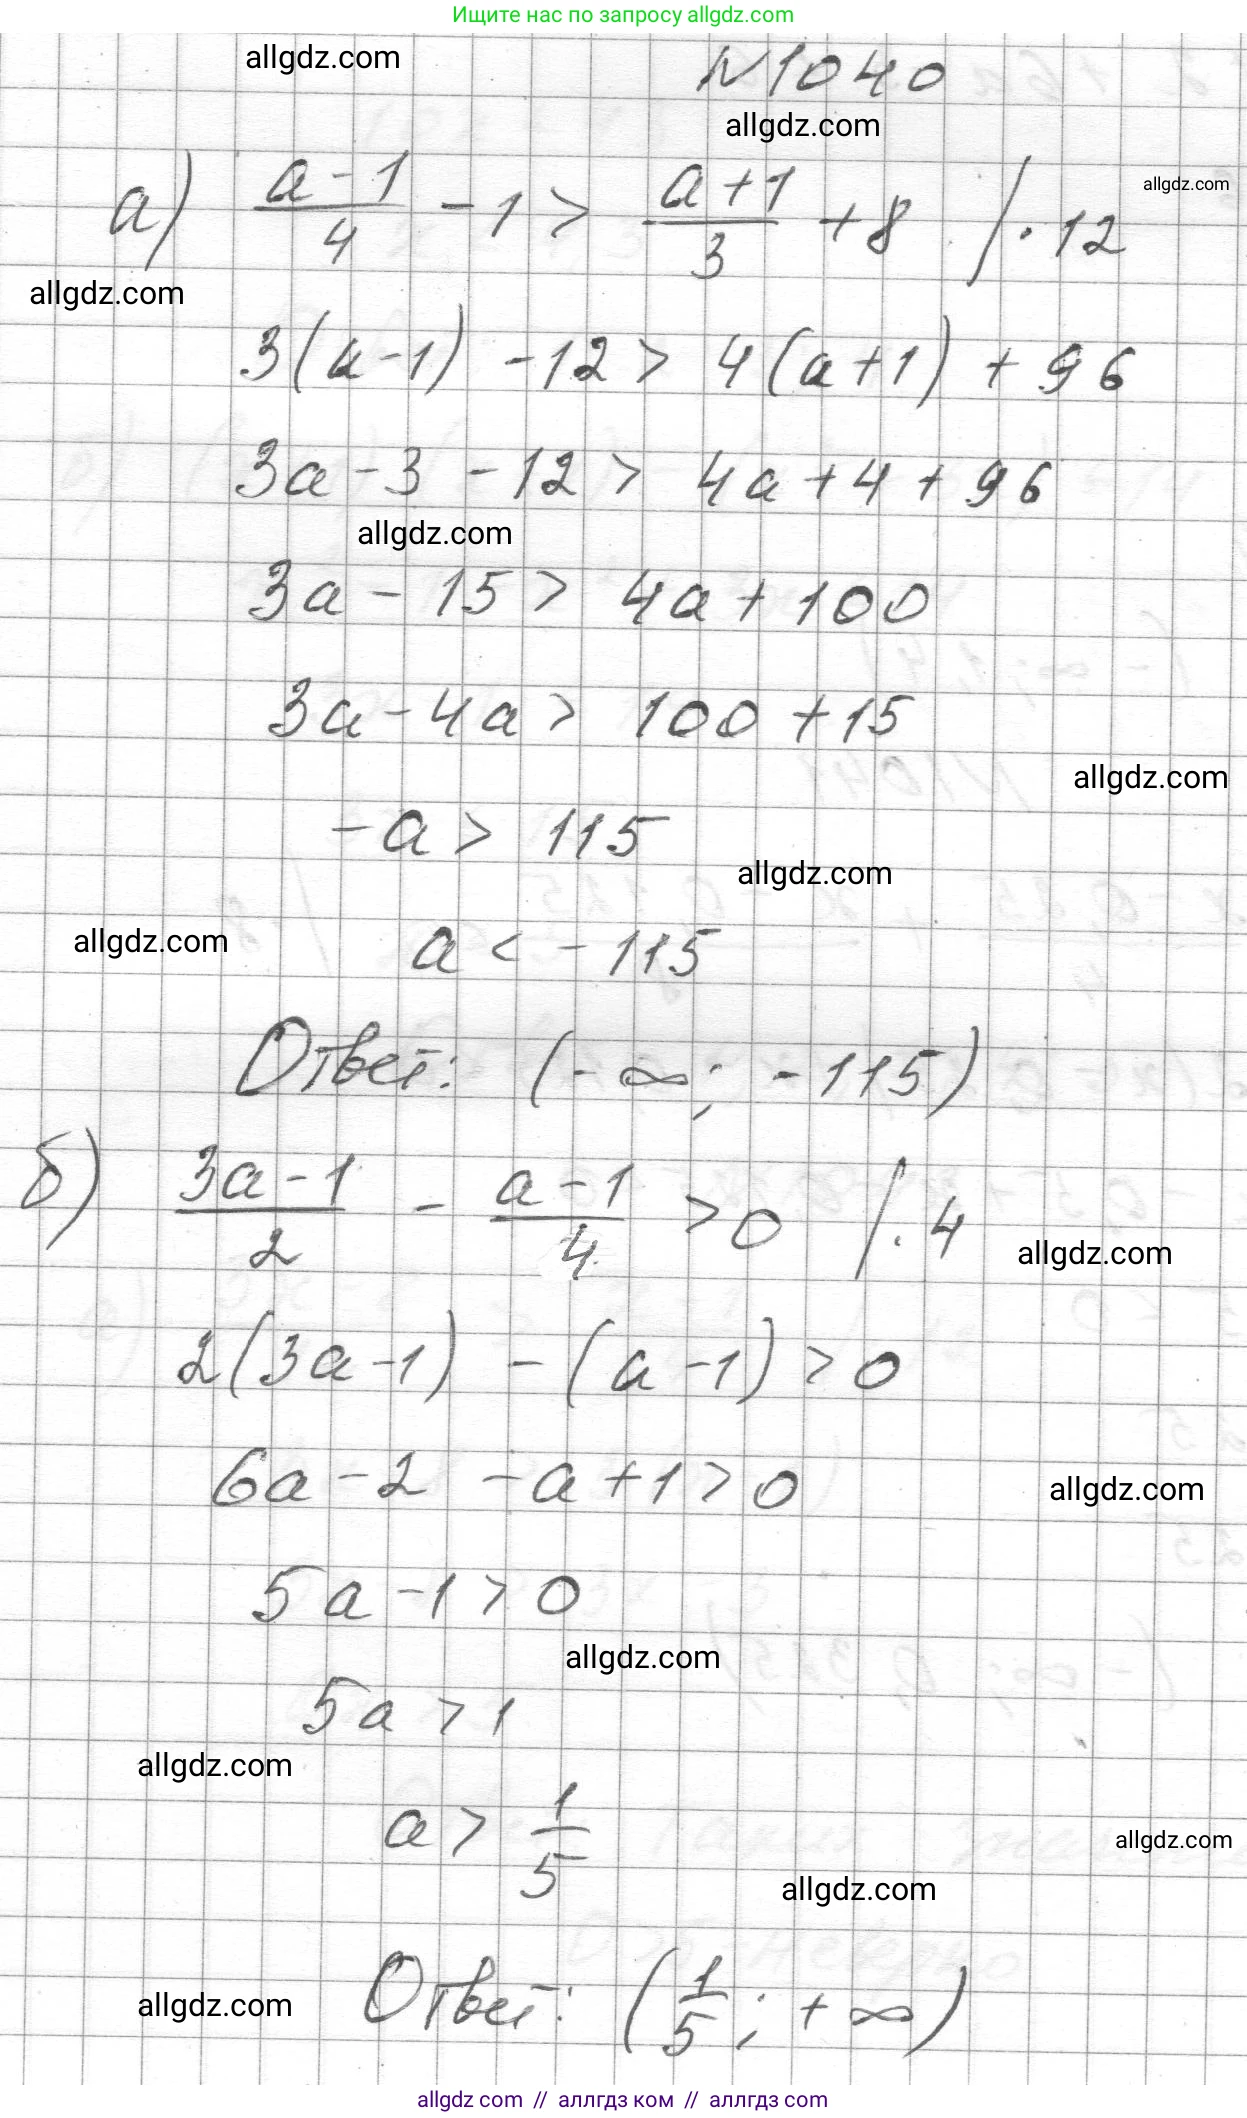 Ищите нас по запросу allgdz.com
allgdz.com
N1040
allgdz.com
allgdz.com
а) (a-1)/4 - 1 > (a+1)/3 + 8 /·12
allgdz.com
3(a-1) - 12 > 4(a+1) + 96
3a - 3 - 12 > 4a + 4 + 96
allgdz.com
3a - 15 > 4a + 100
3a - 4a > 100 + 15
allgdz.com
-a > 115
allgdz.com
allgdz.com
a < -115
Ответ: (-∞; -115)
б) (3a-1)/2 - (a-1)/4 > 0 /·4
allgdz.com
2(3a-1) - (a-1) > 0
6a - 2 - a + 1 > 0
allgdz.com
5a - 1 > 0
allgdz.com
5a > 1
allgdz.com
a > 1/5
allgdz.com
allgdz.com
allgdz.com
Ответ: (1/5; +∞)
allgdz.com // аллгдз ком // аллгдз.com